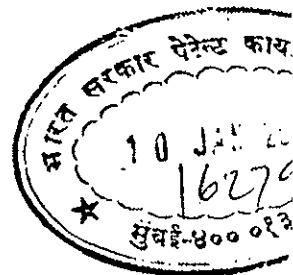 भारत सरकार पेटेन्ट काय
10 JAN
1627
मुंबई-४०० ०१३